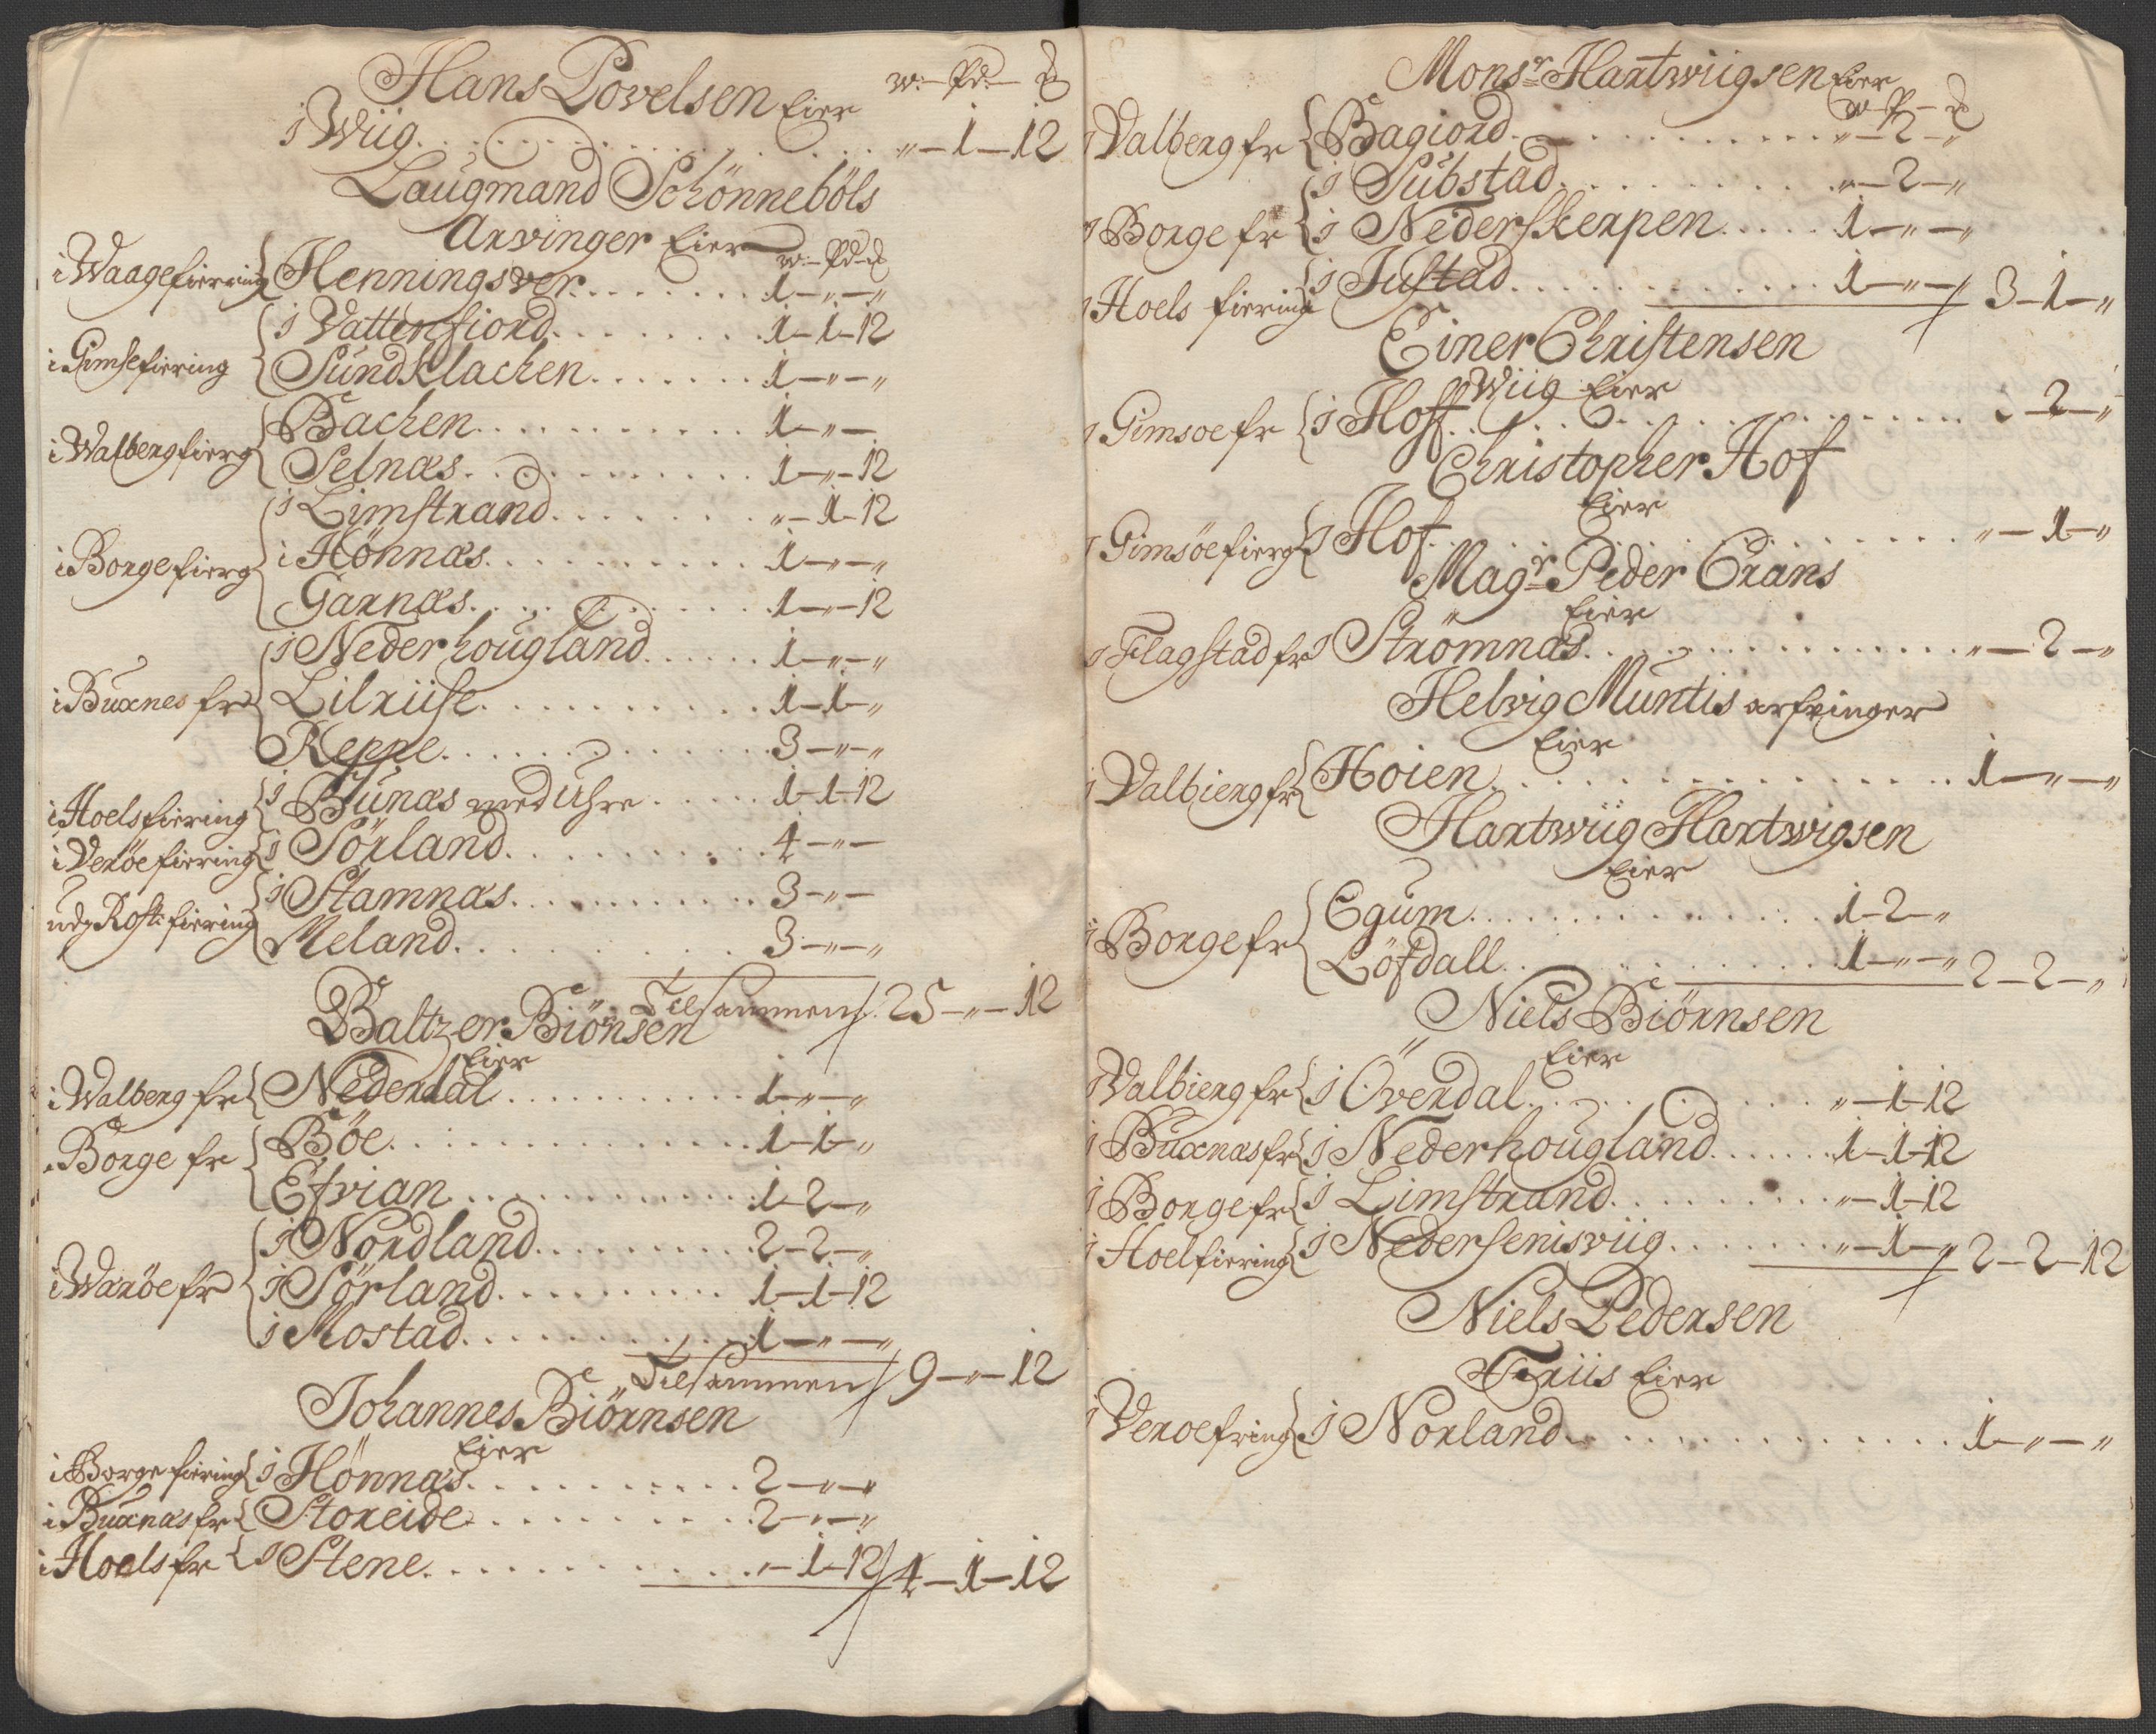 Hans Povelsen Eier w:– Pd:– ℔
j Wiig . . . „ – 1 – 12
Laugmand Schönneböls
Arvinger Eier w:– Pd– ℔
i Waagefierring { Henningsver . . . 1 – „ – „
i Gimsefiering { j Vattenfiord . . . 1 – 1 – 12
Sundklachen . . . 1 – „ – „
i Walbergfierg { Bachen . . . 1 – „ –
Selnæs . . . 1 – „ – 12
i Borgefierg { j Limstrand . . . „ – 1 – 12
i Hönnæs . . . 1 – „ – „
Garnæs . . . 1 – „ – 12
i Buxnes fr { j Nederhougland . . . 1 – „ – „
Lilriise . . . 1 – 1 – „
Reppe . . . 3 – „ – „
i Hoelsfiering { j Bunæs med Uhre . . . 1 – 1 – 12
i Veröefiering { j Sörland . . . 4 – „ –
udj Röst fiering { j Stamnæs . . . 3 – „ –
Meland . . . 3 – „ – „
Tilsammen 25 – „ – 12
Baltzer Biönsen
Eier
i Walberg fr { Nederdal . . . 1 – „ – „
i Borge fr { Böe . . . 1 – 1 – „
Efvian . . . 1 – 2 – „
i Waröe fr { j Nordland . . . 2 – 2 – „
j Sörland . . . 1 – 1 – 12
j Mostad . . . 1 – „ – „
Tilsammen 9 – „ – 12
Johannes Biörnsen
Eier
i Borge fiering { j Hönnæs . . . 2 – „ – „
i Buxnæs fr { Storeide . . . 2 – „ – „
i Hoels fr { j Stene . . . „ – 1 – 12 / 4 – 1 – 12
Monsr Hartwiigsen Eier
w – P – ℔
j Valberg fr { Bagiord . . . „ – 2 – „
j Borge fr { j Substad . . . „ – 2 – „
j Nederskerpen . . . 1 – „ – „
j Hoels fiering { j Justad . . . 1 – „ – / 3 – 1 – „
Einer Christensen
Wiig Eier
j Gimsoe fr { j Hoff . . . „ – 2 – „
Christopher Hof
Eier
j Gimsöefierg { j Hof . . . „ – 1 – „
Magr Peder Crans
Eier
j Flagstad fr j Strömnæs . . . „ – 2 – „
Helvig Muntis arfvinger
Eier
j Valbierg fr { Hoien . . . 1 – „ – „
Hartwiig Hartwigsen
Eier
j Borge fr { Egum . . . 1 – 2 – „
Löfdall . . . 1 – „ – „ 2 – 2 – „
Niels Biörnsen
Eier
j Valbierg fr { j Överdal . . . „ – 1 – 12
j Buxnæs fr { j Nederhougland . . . 1 – 1 – 12
j Borge fr { j Limstrand . . . „ – 1 – 12
j Hoelfiering { j Nedersenisviig . . . „ – 1 – „ 2 – 2 – 12
Niels Pedersen
Friis Eier
j Veroefring { j Norland . . . 1 – „ – „